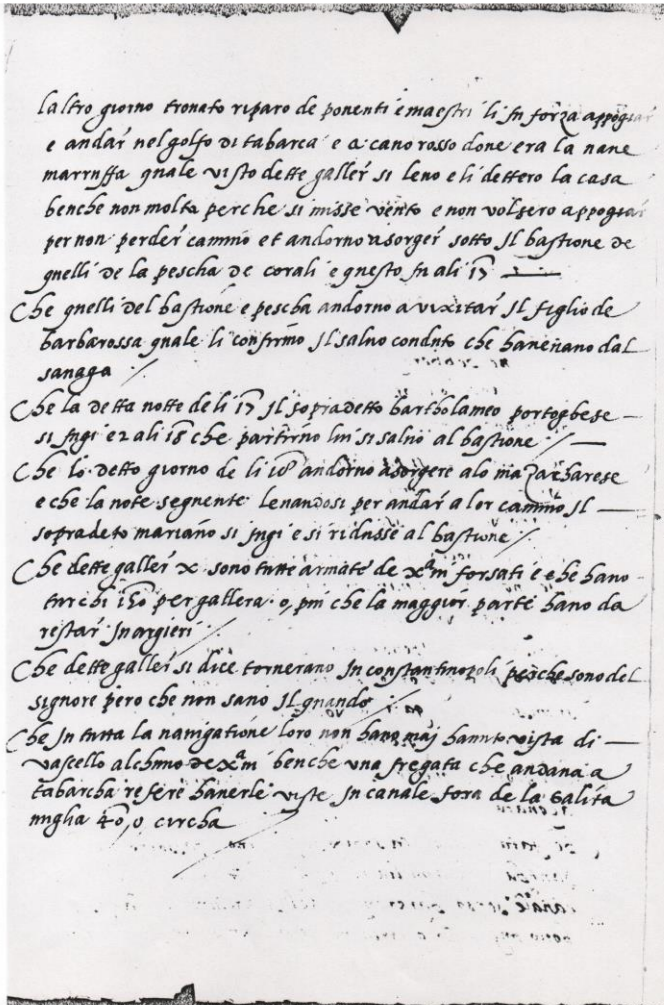 laltro giorno trovato riparo de ponenti e maestri li fu forza appogiar
e andar nel golfo di tabarca e a cavo rosso dove era la nave
marruffa quale visto dette galler si levo e li dettero la casa
benche non molta perche si misse vento e non volsero appogiar
per non perder camino et andorno a sorger sotto Il bastione de
quelli de la pescha de corali e questo fu ali 17
Che quelli del bastione e pescha andorno a vixitar Il figlio de
barbarossa quale li confirmo Il salvo conduto che havevano dal
sanaga
Che la detta notte de li 17 Il sopradetto bartholameo portoghese
si fugi e ali 18 che partirno lui si salvo al bastione
Che lo detto giorno de li 18 andorno a sorgere alo
e che la note seguente levandosi per andar a lor camino Il
sopradeto mariano si fugi e si ridusse al bastione
Che dette galler x sono tutte armate de xani forsati e che hano
turchi 150 per gallera o, piu che la maggior parte hano da
restar In argieri
Che dette galler si dice tornerano In constantinopoli perche sono del
signore pero che non sano Il quando
Che In tutta la navigatione loro non hano maj havuto vista di
vascello alchuno de xani benche una fregata che andava a
tabarcha refere haverle viste In canale fora de la Galita
miglia 40, o circha